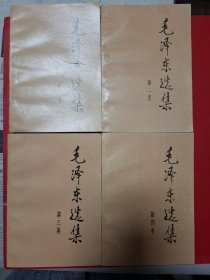 毛泽东选集
毛泽东选集
第二卷
毛泽东选集
第三卷
毛泽东选集
第四卷